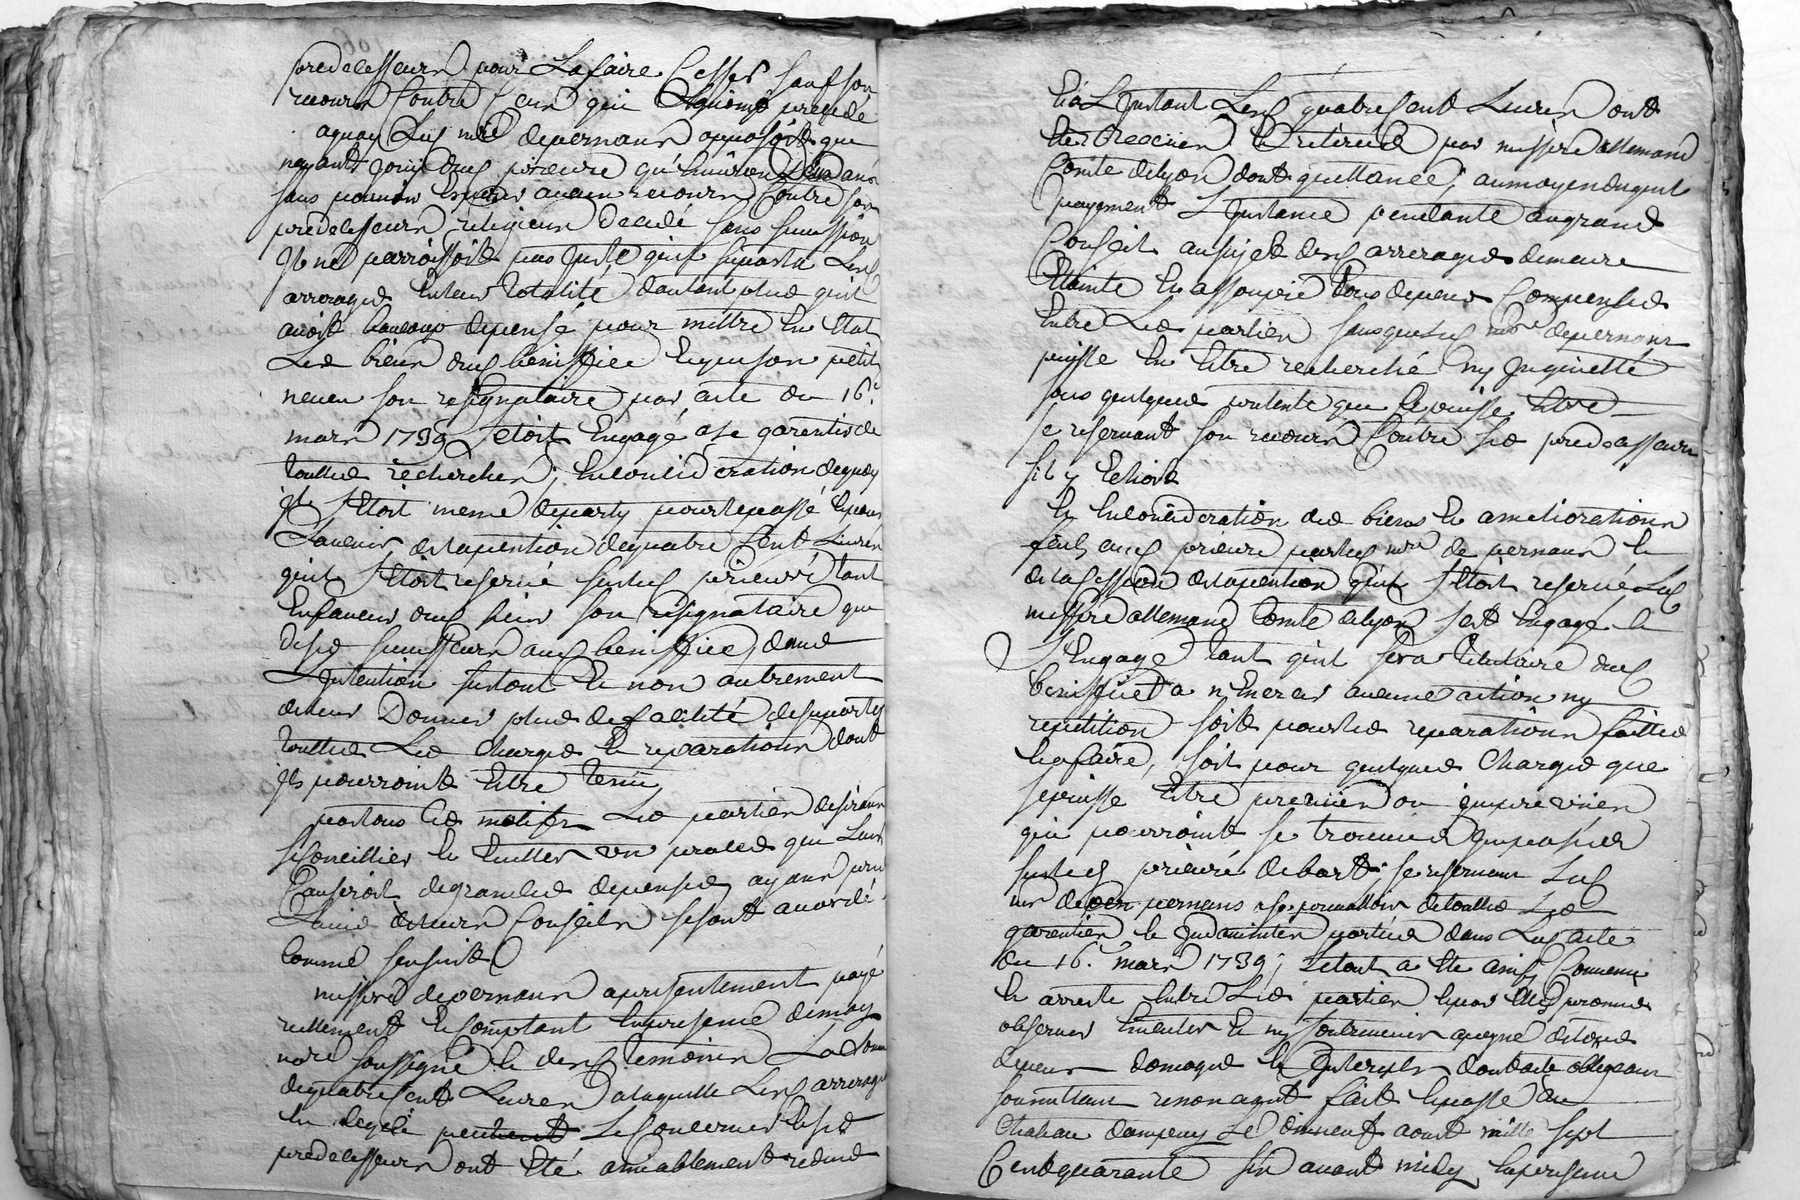 predecesseurs pour La faire Cesser sauf son
recours Contre Ceux qui L'auroint precedé
aquoy Led mre depernans opposoit que
nayant jouy dud prieuré qu'environ Deux ans
sans pouvoir Esperer aucun recours Contre son
predecesseur religieux decedé sans succession
Il ne parroissoit pas juste quil suporta Lesd
arrerages En leur totalité dautant plus quil
avoit beaucoup depensé pour mettre En Etat
Les biens dud beniffice Et que son petit
neveu son resignataire par acte du 16e
mars 1739 s'etoit Engagé a le garentir de
touttes recherches; En consideration dequoy
Il s'Etoit meme departy pour le passé Et pour
L'avenir de la pention de quatre Cent Livres
quil s'Etoit reservé sur led prieuré tant
En faveur dud sieur son resignataire que
de ses successeurs aud beniffice, dans
L'Intention surtout Et non autrement
de leur Donner plus de facilité de suporter
touttes Les charges Et reparations dont
Ils pourroint Etre tenus
par tous Ces motifs Les parties desirans
se Concillier Et Eviter un procés qui Leur
Causeroit de grandes depenses, ayans pris
L'avis de leurs Conseils se sont accordés
Comme s'ensuit
messire depernans a presentement payé
reellement Et Comptant En presence de moy
nore soussigné Et des temoins La somme
de quatre Cent Livres a laquelle Lesd arrerages
En ce qui peuvent Le Concerner Et ses
predecesseurs ont Eté amiablement reduit
Et a L'Instant Lesd quatre Cent Livres ont
Eté receües Et retirées par messire allemand
Comte de Lyon dont quittance; au moyen duquel
payement L'Instance pendante au grand
Conseil au sujet desd arrerages demeure
Eteinte Et assoupie tous depens Compensés
Entre Les parties sans que led mre depernans
puisse En Etre recherché ny Inquietté
sous quelques pretexte que Ce puisse Etre
se reservant son recours Contre ses predecesseurs
s'il y Echoit
Et En consideration des biens Et ameliorations
faits aud prieuré par led mre de pernans Et
de la Cession de la pention quil s'Etoit reservé Led
messire allemand Comte de Lyon s'est Engagé Et
s'Engage tant quil sera titulaire dud
beniffice a n'Exercer aucune action ny
repetition soit pour les reparations faittes
Et a faire, soit pour quelques Charges que
se puisse Etre preveües ou impreveües
qui pourroint se trouver Imposées
sur led prieuré de bart; se reservant Led
mr de pernans se prevalloir de touttes Les
garenties Et Indemnités portées dans Led acte
du 16e mars 1739; Le tout a Eté ainsy Convenu
Et arresté Entre Les parties Et par Elles promis
observer Executer Et ny Contrevenir a peyne de tous
depens domages Et Interests dont acte obligeans
soumettans renonçant fait Et passé au
Chateau dampuy Le dixneuf aoust mille sept
Cent quarante six avant midy, En presence